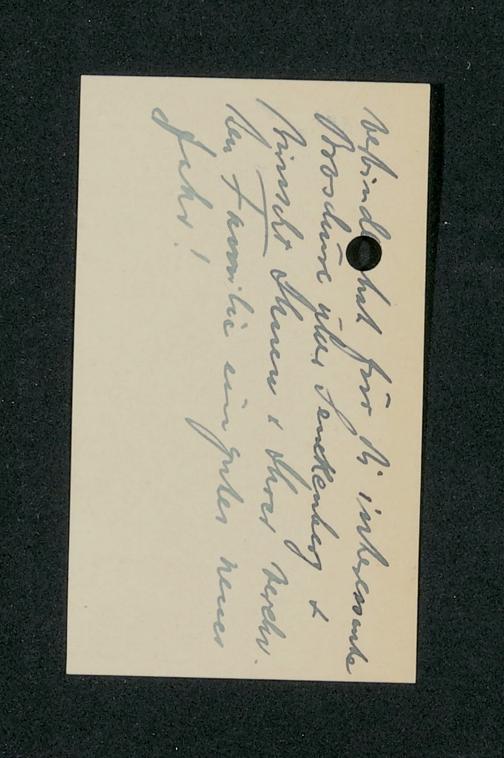 verbindl hst für die interessante
Broschüre über Senckenberg &
wünscht Ihnen & Ihrer verehr.
ten Familie ein gutes neues
Jahr!